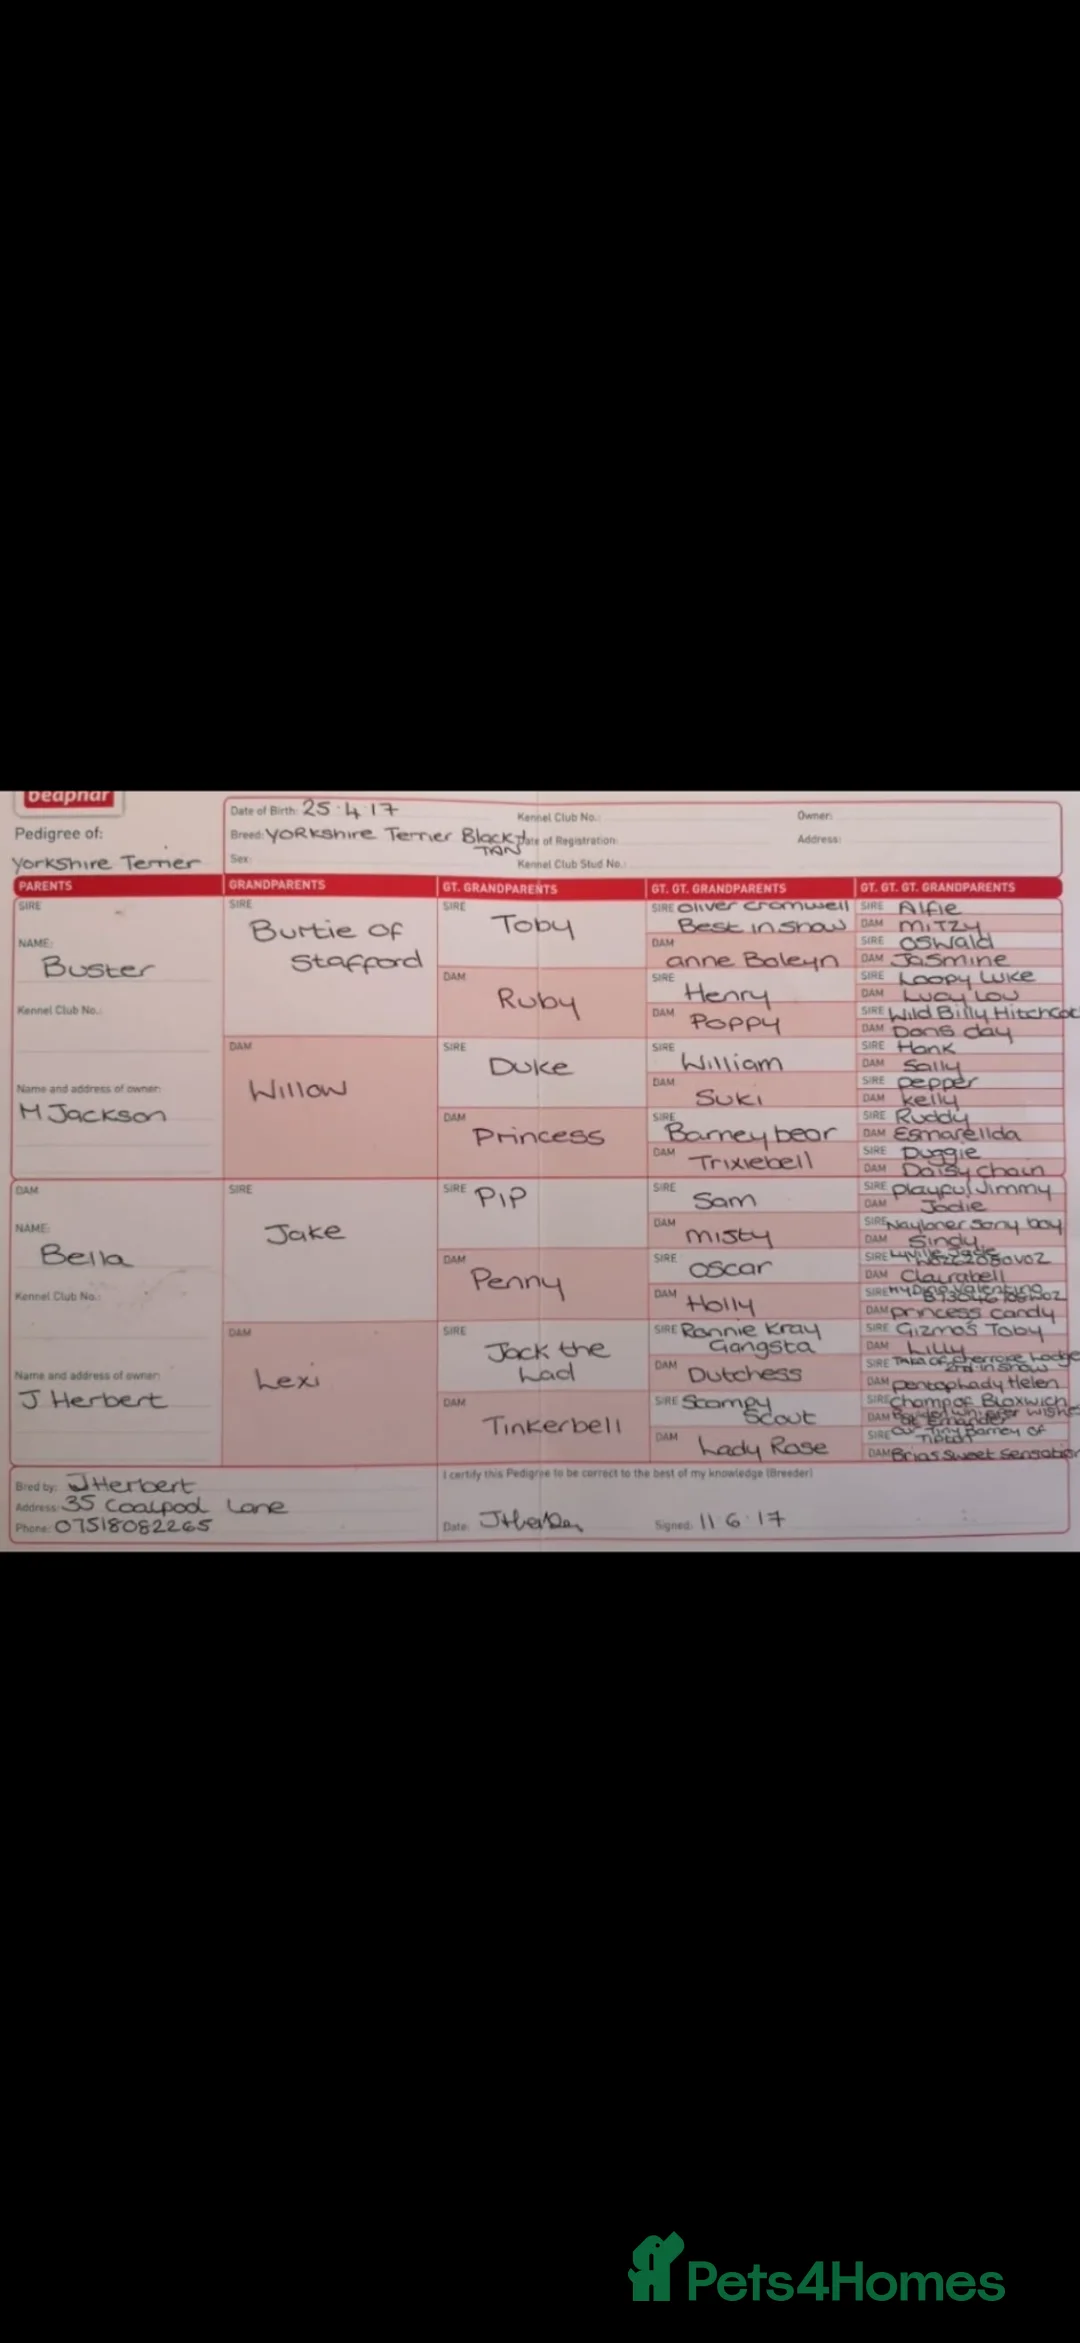 beaphar
Pedigree of:
Yorkshire Terrier
Date of Birth: 25.4.17
Kennel Club No.:
Owner:
Breed: YORKshire Terrier Black &
TAN
Date of Registration:
Address:
Sex:
Kennel Club Stud No.:
PARENTS
GRANDPARENTS
GT. GRANDPARENTS
GT. GT. GRANDPARENTS
GT. GT. GT. GRANDPARENTS
SIRE
NAME:
Buster
Kennel Club No.:
Name and address of owner:
M Jackson
DAM
NAME:
Bella
Kennel Club No.:
Name and address of owner:
J Herbert
SIRE
Burtie of
Stafford
DAM
Willow
SIRE
Jake
DAM
Lexi
SIRE
Toby
DAM
Ruby
SIRE
Duke
DAM
Princess
SIRE PIP
DAM
Penny
SIRE
Jack the
Lad
DAM
Tinkerbell
SIRE Oliver Cromwell
Best in Show
DAM
anne Boleyn
SIRE
Henry
DAM
POPPY
SIRE
William
DAM
SUKI
SIRE
Barney bear
DAM
Trixiebell
SIRE
Sam
DAM
misty
SIRE
oscar
DAM
Holly
SIRE Ronnie Kray
Gangsta
DAM
Dutchess
SIRE Scampy
Scout
DAM
Lady Rose
SIRE Alfie
DAM MITZY
SIRE OSWald
DAM Jasmine
SIRE Loopy Luke
DAM Lucy Lou
SIRE Wild Billy Hitchcock
DAM Doris day
SIRE Hank
DAM Sally
SIRE pepper
DAM kelly
SIRE Ruddy
DAM Esmarellda
SIRE Duggie
DAM Daisy chain
SIRE playful Jimmy
DAM Jodie
SIRE Nayloner Sony boy
DAM Sindy
SIRE Lyville Jade
DAM Clairabell
SIRE My Dino Valentino
DAM princess candy
SIRE Gizmo's Toby
DAM Lilly
SIRE of cherrone Lodge
2nd in Show
DAM pentophady Helen
SIRE Champ of Bloxwich
DAM whisper wishes
SIRE Our Tiny Barney of
Tipton
DAM Brias Sweet Sensation
Bred by: J Herbert
Address: 35 Coalpool Lane
Phone: 07518082265
I certify this Pedigree to be correct to the best of my knowledge (Breeder)
Date: J Herbert
Signed: 11.6.17
Pets4Homes